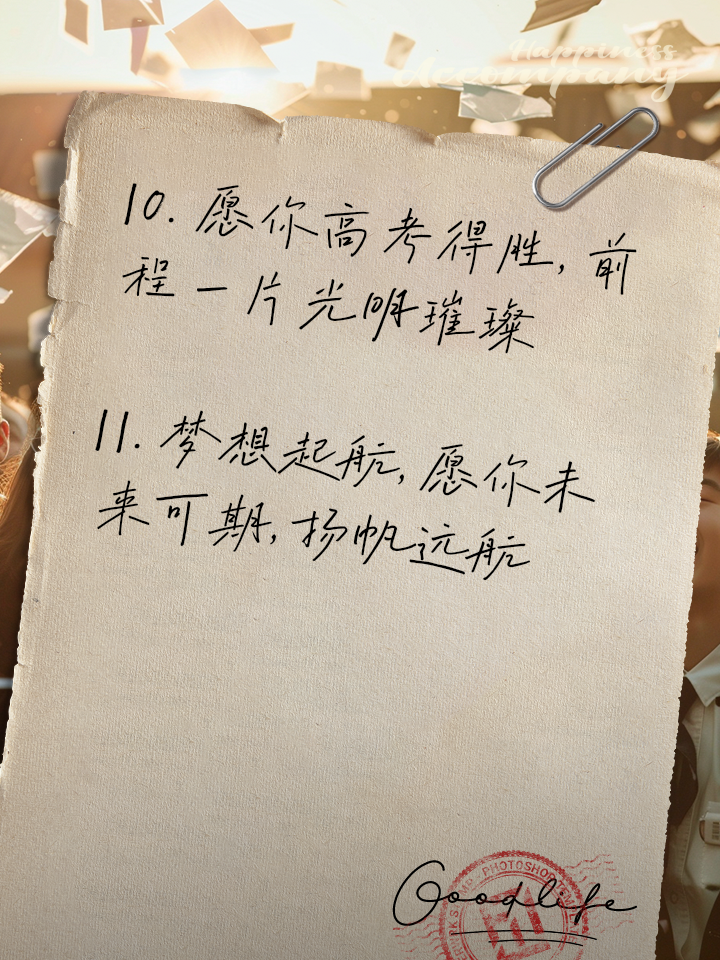 Happiness
Accompany
10. 愿你高考得胜, 前
程一片光明璀璨
11. 梦想起航, 愿你未
来可期, 扬帆远航
PHOTOSHOP
Goodlife